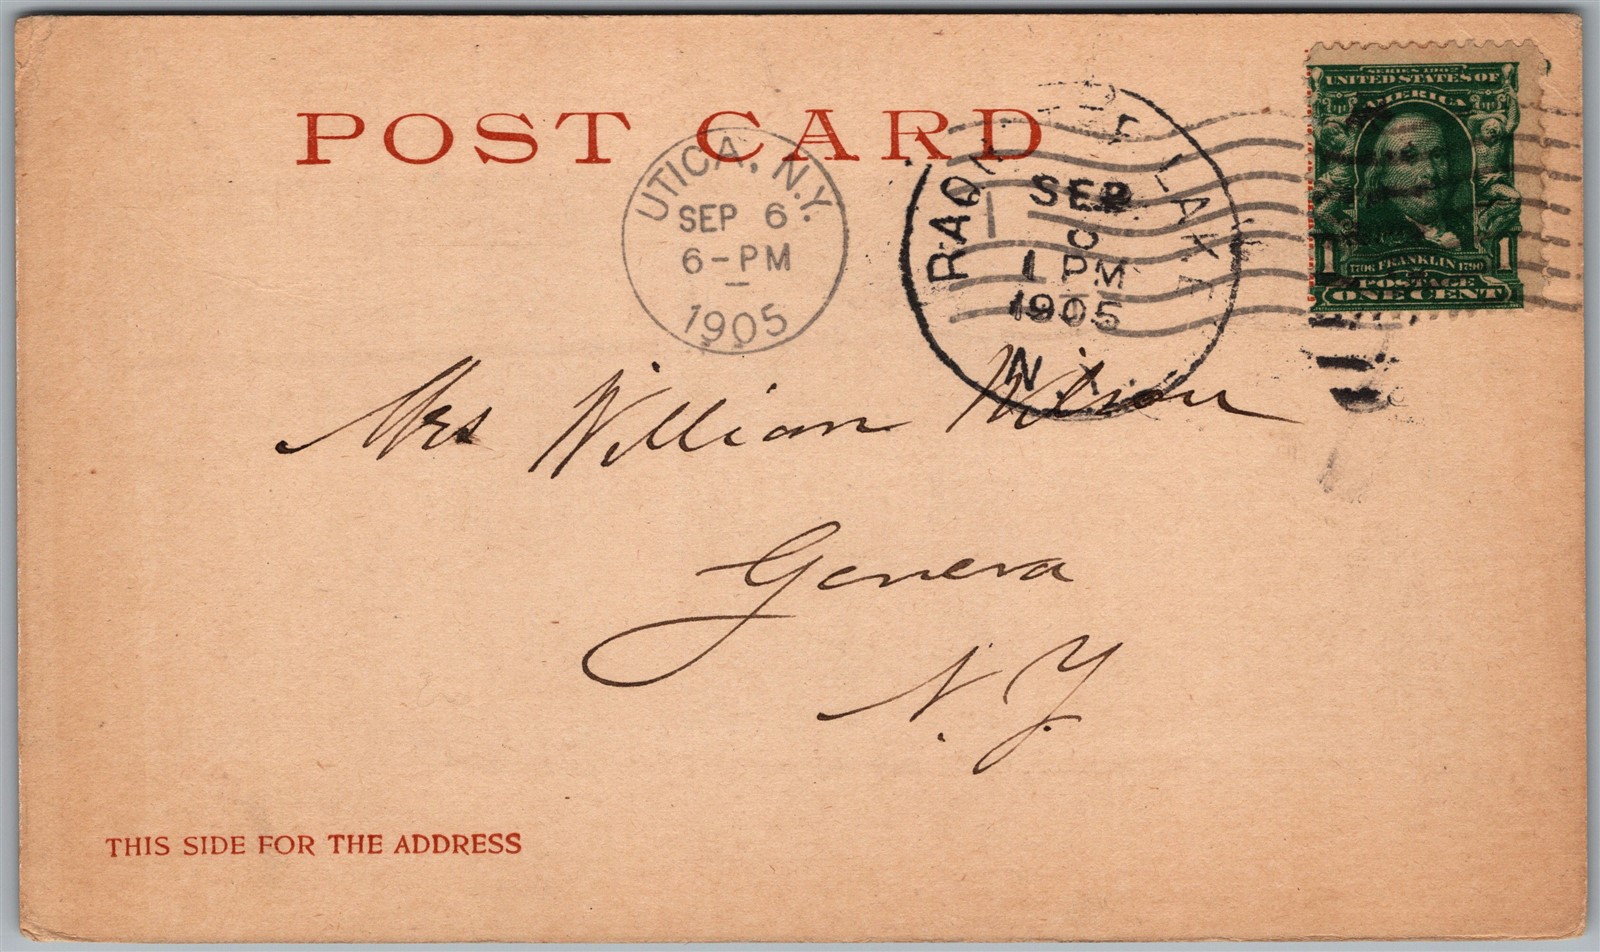 POST CARD
UTICA, N.Y.
SEP 6
6-PM
1905
LAKE
SEP
1 PM
1905
N.Y.
SERIES 1902
UNITED STATES OF
AMERICA
1 1706 FRANKLIN 1790 1
POSTAGE
ONE CENT
Mrs William Wilson
Geneva
N.Y.
THIS SIDE FOR THE ADDRESS